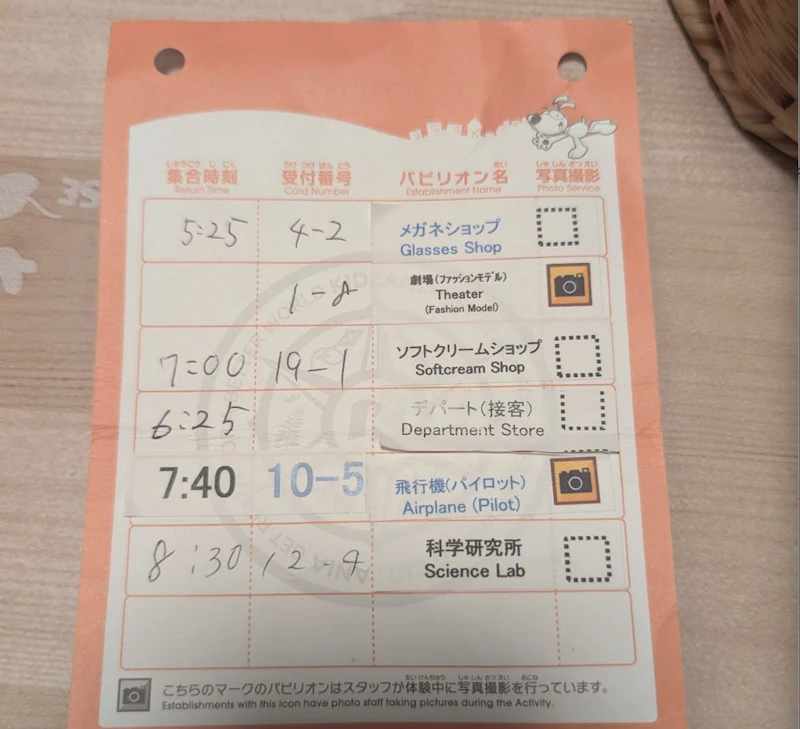 しゅうごう じ こく
集合時刻
Return Time
うけ つけ ばん ごう
受付番号
Card Number
めい
パビリオン名
Establishment Name
しゃ しん さつ えい
写真撮影
Photo Service
5:25 4-2 メガネショップ
Glasses Shop
劇場(ファッションモデル)
Theater
(Fashion Model)
7:00 19-1 ソフトクリームショップ
Softcream Shop
6:25 デパート(接客)
Department Store
7:40 10-5 飛行機(パイロット)
Airplane (Pilot)
8:30 科学研究所
Science Lab
たい けんちゅう しゃ しん さつ えい おこな
こちらのマークのパビリオンはスタッフが体験中に写真撮影を行っています。
Establishments with this icon have photo staff taking pictures during the Activity.